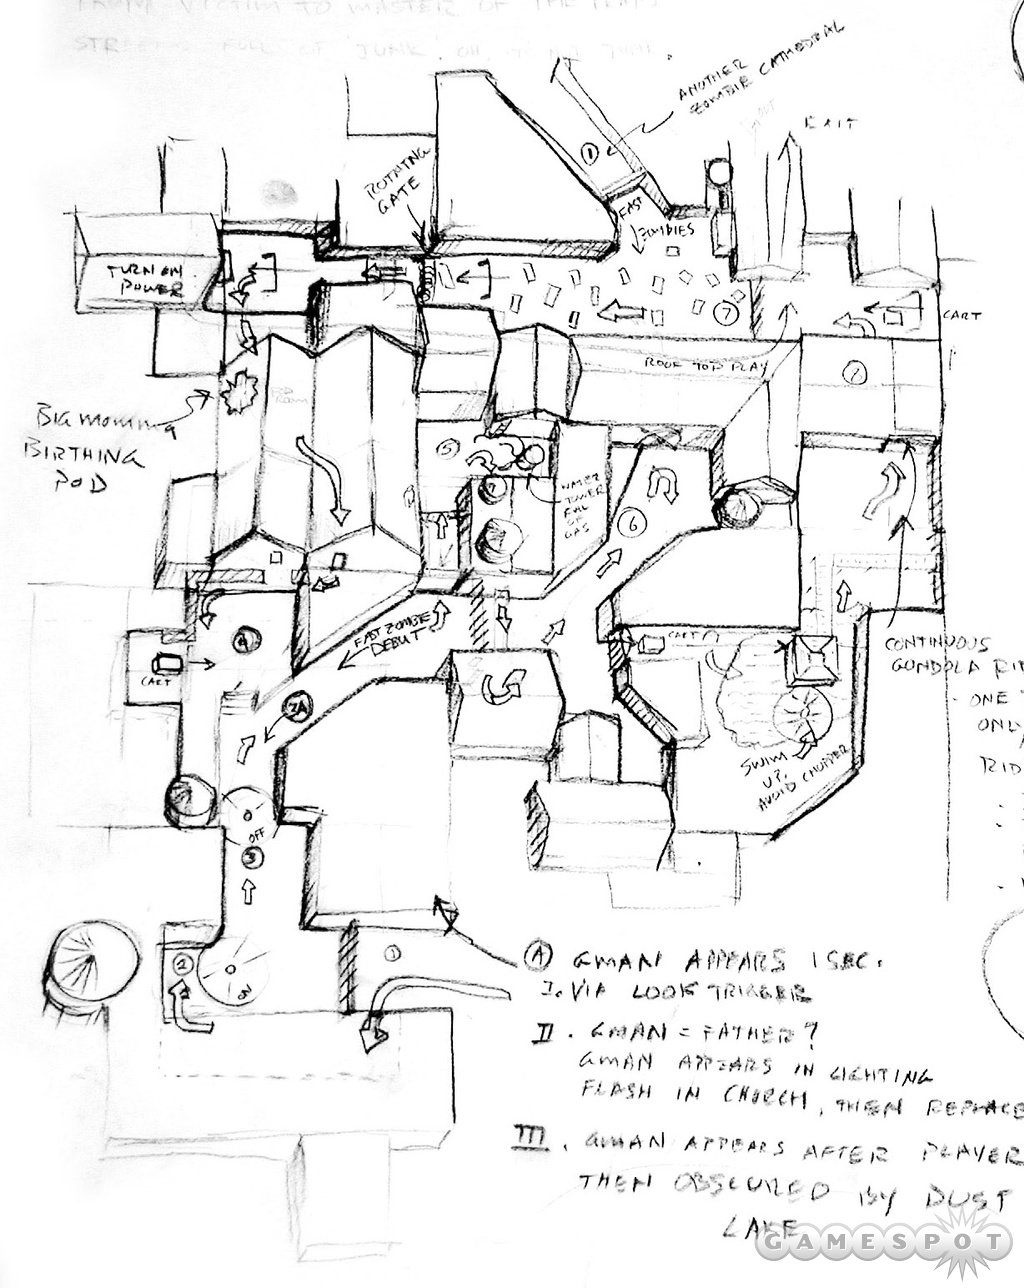 FROM VICTIM TO MASTER OF THE TRAPS
STREETS FULL OF "JUNK".
ANOTHER
ZOMBIE CATHEDRAL
EXIT
1
ROTATING
GATE
FAST
ZOMBIES
TURN ON
POWER
7
CART
ROOF TOP PLAY
7
BIG MOMMA
BIRTHING
POD
5
WATER
TOWER
FULL
OF
GAS
6
FAST ZOMBIE
DEBUT
4
CART
CART
CONTINUOUS
GONDOLA RI
- ONE
ONLY
RID
3A
SWIM
UP,
AVOID CHOPPER
OFF
3
2
ON
1
A GMAN APPEARS 1 SEC.
I. VIA LOOK TRIGGER
II. GMAN = FATHER?
GMAN APPEARS IN LIGHTING
FLASH IN CHURCH, THEN REPLACE
III. GMAN APPEARS AFTER PLAYER
THEN OBSCURED BY DUST
LAKE
GAMESPOT